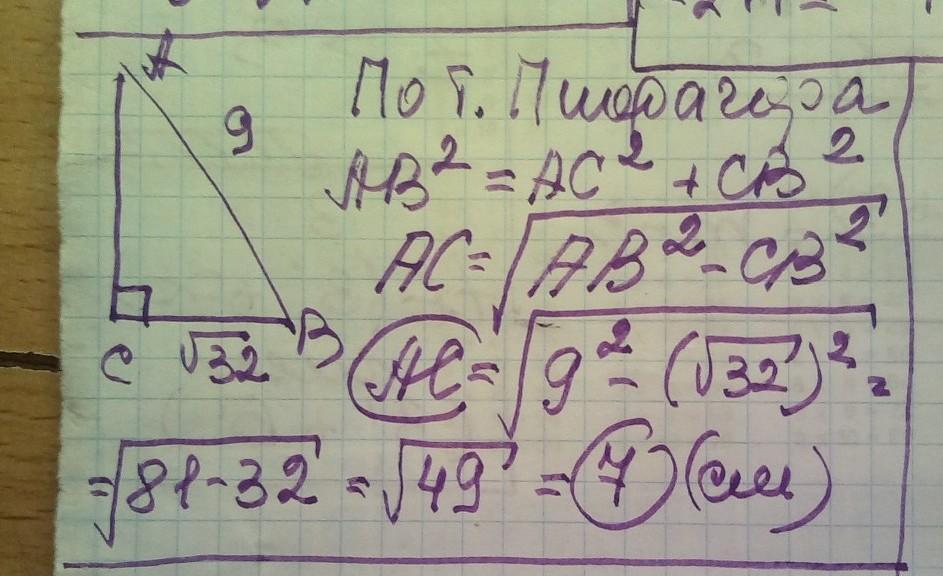 A
9
C √32 B
По т. Пифагора
AB² = AC² + CB²
AC = √(AB² - CB²)
AC = √(9² - (√32)²) =
= √(81-32) = √49 = 7 (см)